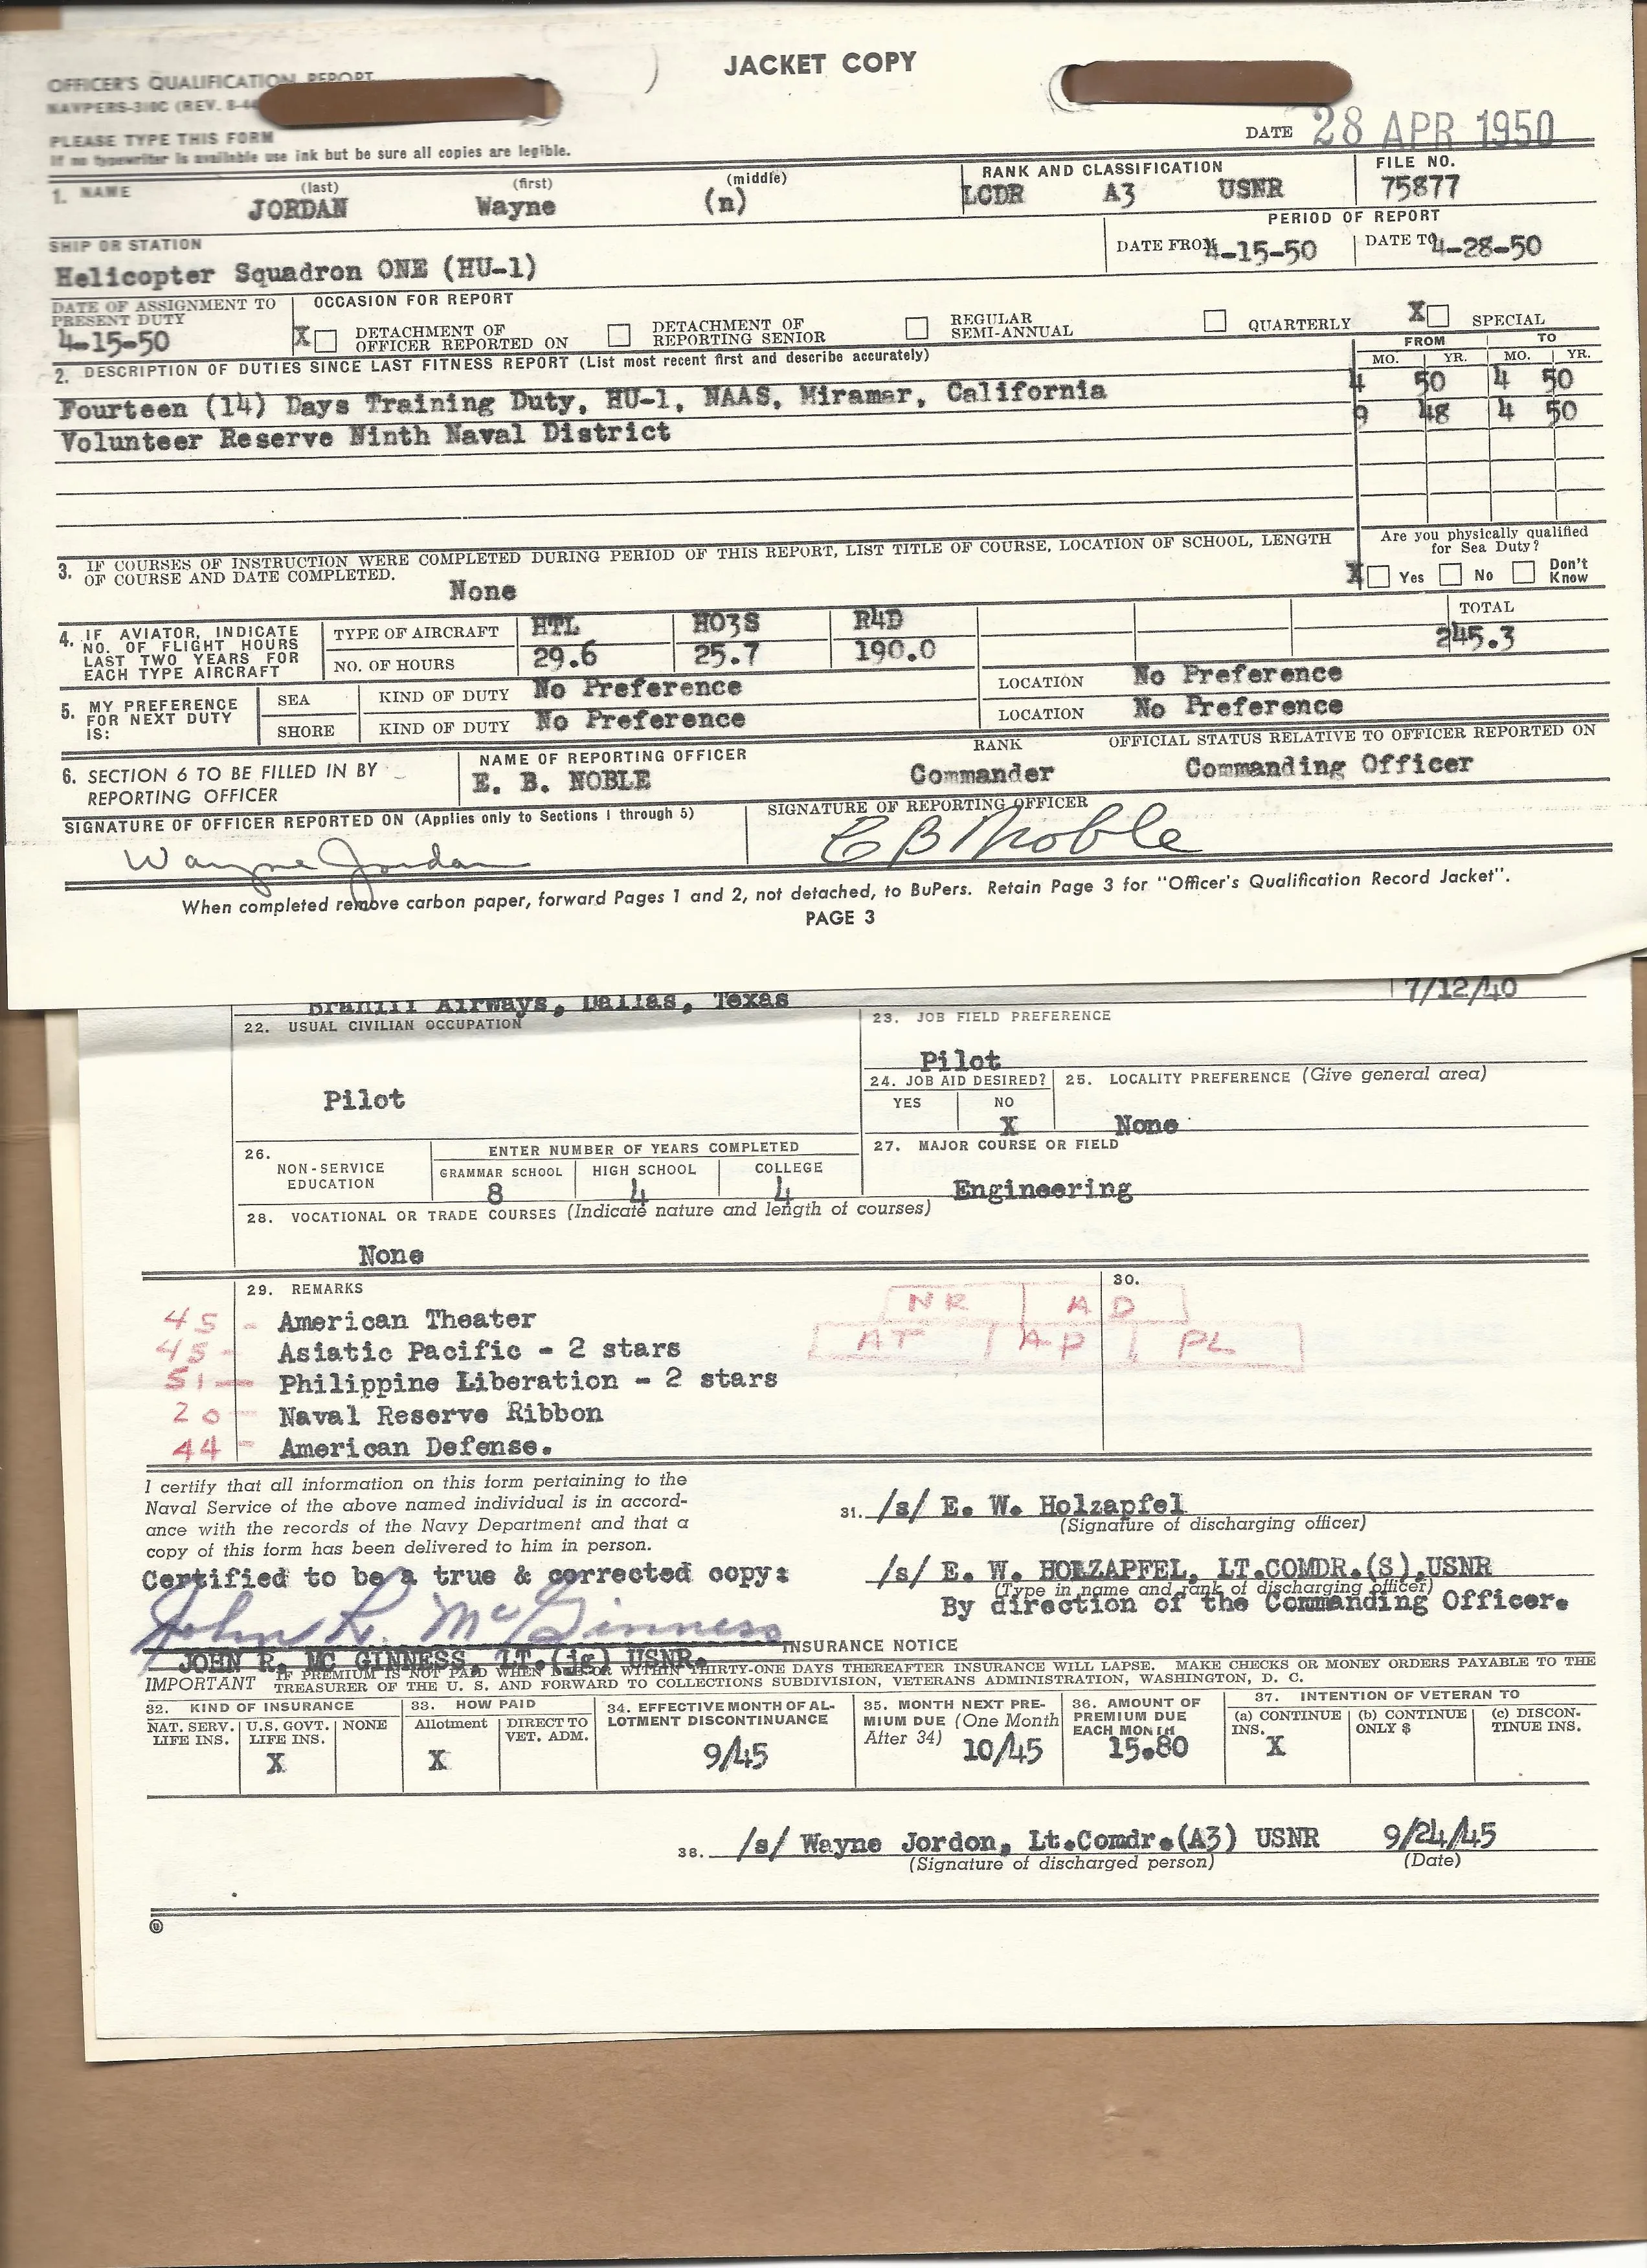 JACKET COPY
OFFICER'S QUALIFICATION REPORT
NAVPERS-310C (REV. 8-44
PLEASE TYPE THIS FORM
If no typewriter is available use ink but be sure all copies are legible.
DATE 28 APR 1950
1. NAME (last) (first) (middle) RANK AND CLASSIFICATION FILE NO.
JORDAN Wayne (n) LCDR A3 USNR 75877
SHIP OR STATION PERIOD OF REPORT
Helicopter Squadron ONE (HU-1) DATE FROM 4-15-50 DATE TO 4-28-50
DATE OF ASSIGNMENT TO PRESENT DUTY OCCASION FOR REPORT
4-15-50 X DETACHMENT OF OFFICER REPORTED ON DETACHMENT OF REPORTING SENIOR REGULAR SEMI-ANNUAL QUARTERLY X SPECIAL
2. DESCRIPTION OF DUTIES SINCE LAST FITNESS REPORT (List most recent first and describe accurately) FROM TO
MO. YR. MO. YR.
Fourteen (14) Days Training Duty, HU-1, NAAS, Miramar, California 4 50 4 50
Volunteer Reserve Ninth Naval District 9 48 4 50
3. IF COURSES OF INSTRUCTION WERE COMPLETED DURING PERIOD OF THIS REPORT, LIST TITLE OF COURSE, LOCATION OF SCHOOL, LENGTH
OF COURSE AND DATE COMPLETED.
None
Are you physically qualified
for Sea Duty?
X Yes No Don't Know
4. IF AVIATOR, INDICATE
NO. OF FLIGHT HOURS
LAST TWO YEARS FOR
EACH TYPE AIRCRAFT
TYPE OF AIRCRAFT HTL HO3S R4D TOTAL
NO. OF HOURS 29.6 25.7 190.0 245.3
5. MY PREFERENCE
FOR NEXT DUTY
IS:
SEA KIND OF DUTY No Preference LOCATION No Preference
SHORE KIND OF DUTY No Preference LOCATION No Preference
6. SECTION 6 TO BE FILLED IN BY
REPORTING OFFICER
NAME OF REPORTING OFFICER RANK OFFICIAL STATUS RELATIVE TO OFFICER REPORTED ON
E. B. NOBLE Commander Commanding Officer
SIGNATURE OF OFFICER REPORTED ON (Applies only to Sections 1 through 5) SIGNATURE OF REPORTING OFFICER
Wayne Jordan E B Noble
When completed remove carbon paper, forward Pages 1 and 2, not detached, to BuPers. Retain Page 3 for "Officer's Qualification Record Jacket".
PAGE 3
Braniff Airways, Dallas, Texas 7/12/40
22. USUAL CIVILIAN OCCUPATION 23. JOB FIELD PREFERENCE
Pilot
Pilot
24. JOB AID DESIRED? 25. LOCALITY PREFERENCE (Give general area)
YES NO
X None
26. NON-SERVICE EDUCATION ENTER NUMBER OF YEARS COMPLETED 27. MAJOR COURSE OR FIELD
GRAMMAR SCHOOL HIGH SCHOOL COLLEGE
8 4 4 Engineering
28. VOCATIONAL OR TRADE COURSES (Indicate nature and length of courses)
None
29. REMARKS 30.
NR AD
AT AP PL
45 - American Theater
45 - Asiatic Pacific - 2 stars
51 - Philippine Liberation - 2 stars
20 - Naval Reserve Ribbon
44 - American Defense.
I certify that all information on this form pertaining to the
Naval Service of the above named individual is in accord-
ance with the records of the Navy Department and that a
copy of this form has been delivered to him in person.
31. /s/ E. W. Holzapfel
(Signature of discharging officer)
Certified to be a true & corrected copy:
/s/ E. W. HOLZAPFEL, LT.COMDR.(S),USNR
(Type in name and rank of discharging officer)
By direction of the Commanding Officer.
John R. McGinness
JOHN R. MC GINNESS, LT.(jg) USNR.
INSURANCE NOTICE
IMPORTANT IF PREMIUM IS NOT PAID WHEN DUE OR WITHIN THIRTY-ONE DAYS THEREAFTER INSURANCE WILL LAPSE. MAKE CHECKS OR MONEY ORDERS PAYABLE TO THE
TREASURER OF THE U. S. AND FORWARD TO COLLECTIONS SUBDIVISION, VETERANS ADMINISTRATION, WASHINGTON, D. C.
32. KIND OF INSURANCE
NAT. SERV. LIFE INS. U.S. GOVT. LIFE INS. NONE
X
33. HOW PAID
Allotment DIRECT TO VET. ADM.
X
34. EFFECTIVE MONTH OF AL-
LOTMENT DISCONTINUANCE
9/45
35. MONTH NEXT PRE-
MIUM DUE (One Month
After 34) 10/45
36. AMOUNT OF
PREMIUM DUE
EACH MONTH
15.80
37. INTENTION OF VETERAN TO
(a) CONTINUE INS. (b) CONTINUE ONLY $ (c) DISCON-
TINUE INS.
X
38. /s/ Wayne Jordon, Lt.Comdr.(A3) USNR 9/24/45
(Signature of discharged person) (Date)